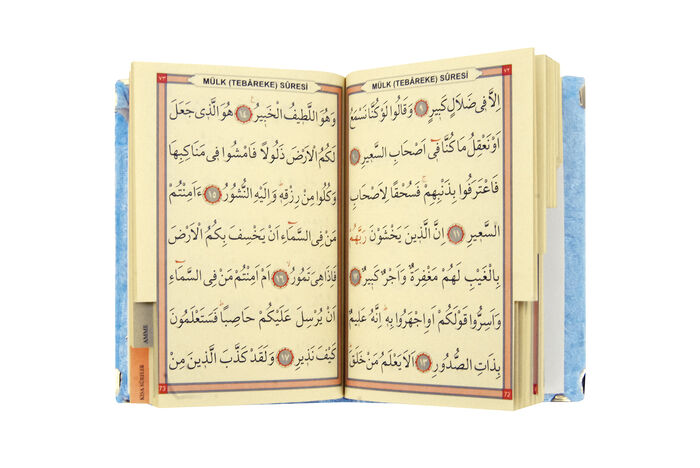 ٧٢
MÜLK (TEBÂREKE) SÛRESİ
اِلَّا فٖى ضَلَالٍ كَبٖيرٍ ﴿٩﴾ وَقَالُوا لَوْ كُنَّا نَسْمَعُ
اَوْ نَعْقِلُ مَا كُنَّا فٖٓى اَصْحَابِ السَّعٖيرِ ﴿١٠﴾
فَاعْتَرَفُوا بِذَنْبِهِمْۚ فَسُحْقًا لِاَصْحَابِ
السَّعٖيرِ ﴿١١﴾ اِنَّ الَّذٖينَ يَخْشَوْنَ رَبَّهُمْ
بِالْغَيْبِ لَهُمْ مَغْفِرَةٌ وَاَجْرٌ كَبٖيرٌ ﴿١٢﴾
وَاَسِرُّوا قَوْلَكُمْ اَوِ اجْهَرُوا بِهٖؕ اِنَّهُ عَلٖيمٌ
بِذَاتِ الصُّدُورِ ﴿١٣﴾ اَلَا يَعْلَمُ مَنْ خَلَقَؕ
72
٧٣
MÜLK (TEBÂREKE) SÛRESİ
وَهُوَ اللَّطٖيفُ الْخَبٖيرُ ﴿١٤﴾ هُوَ الَّذٖى جَعَلَ
لَكُمُ الْاَرْضَ ذَلُولًا فَامْشُوا فٖى مَنَاكِبِهَا
وَكُلُوا مِنْ رِزْقِهٖؕ وَاِلَيْهِ النُّشُورُ ﴿١٥﴾ ءَاَمِنْتُمْ
مَنْ فِى السَّمَٓاءِ اَنْ يَخْسِفَ بِكُمُ الْاَرْضَ
فَاِذَا هِىَ تَمُورُۙ ﴿١٦﴾ اَمْ اَمِنْتُمْ مَنْ فِى السَّمَٓاءِ
اَنْ يُرْسِلَ عَلَيْكُمْ حَاصِبًاؕ فَسَتَعْلَمُونَ
كَيْفَ نَذٖيرِ ﴿١٧﴾ وَلَقَدْ كَذَّبَ الَّذٖينَ مِنْ
73
AMME
KISA SÛRELER